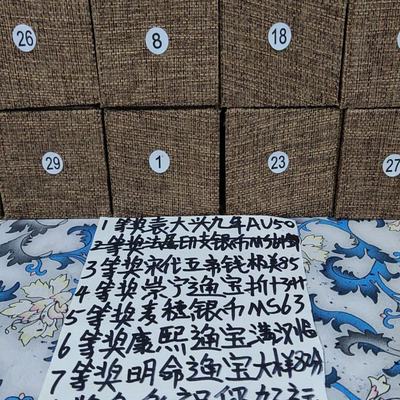 26 8 18
29 1 23 27
1等奖袁大头九年AU50
2等奖法属印支银币MS
3等奖宋代五帝钱极美85
4等奖崇宁通宝折十
5等奖麦穗银币MS63
6等奖康熙通宝满汉
7等奖明命通宝大样